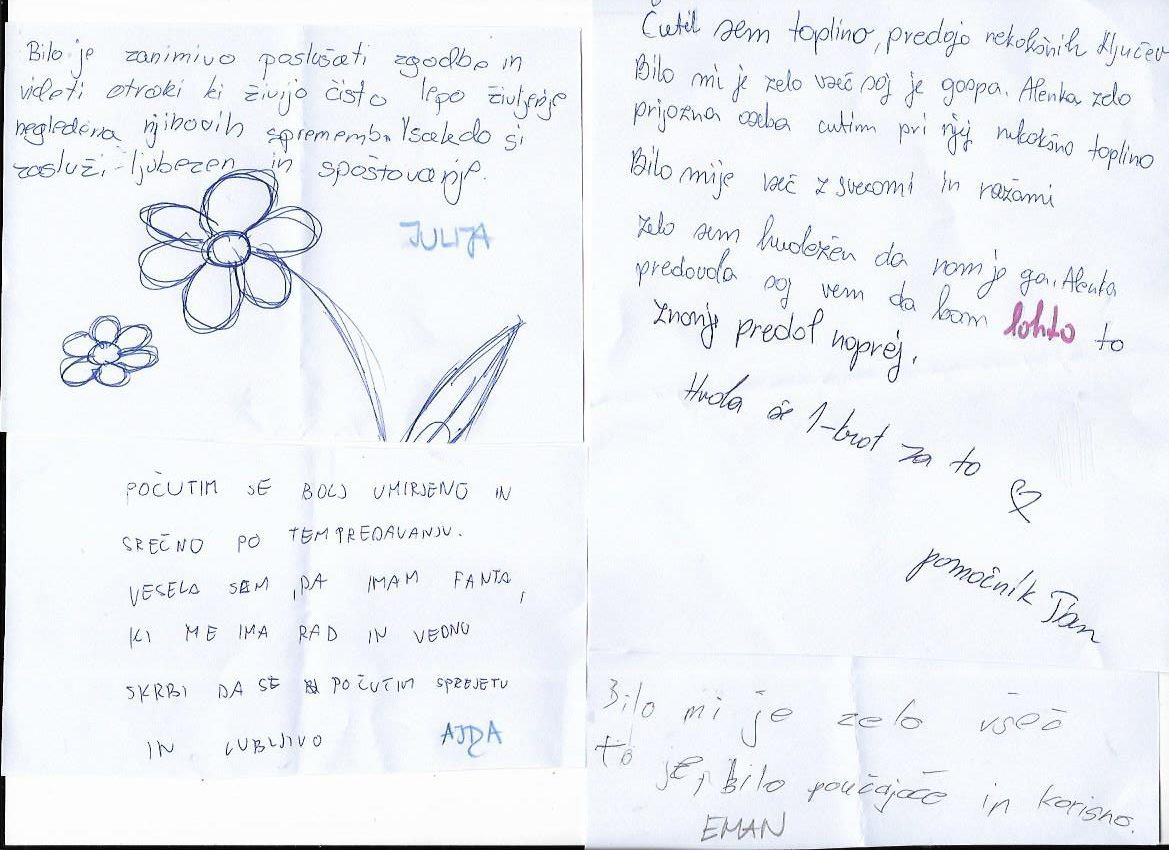 Bilo je zanimivo poslušati zgodbe in
videti otroki ki živijo čisto lepo življenje
negledena njihovih sprememb. Vsakdo si
zasluži ljubezen in spoštovanje.
JULIJA
POČUTIM SE BOLJ UMIRJENO IN
SREČNO PO TEM PREDAVANJU.
VESELA SEM, DA IMAM FANTA,
KI ME IMA RAD IN VEDNO
SKRBI DA SE POČUTIM SPREJETO
IN LJUBLJIVO
AJDA
Čutil sem toplino, predajo nekakšnih ključev
Bilo mi je zelo všeč saj je gospa. Alenka zelo
prijazna oseba cutim pri njej nekakšno toplino
Bilo mije všeč z svecami in rožami
zelo sem hvaležen da nam je ga. Alenka
predavala saj vem da bom lahko to
znanje predal naprej.
Hvala še 1-krat za to
pomočnik Tian
Bilo mi je zelo všeč
to je, bilo poučajoče in korisno.
EMAN